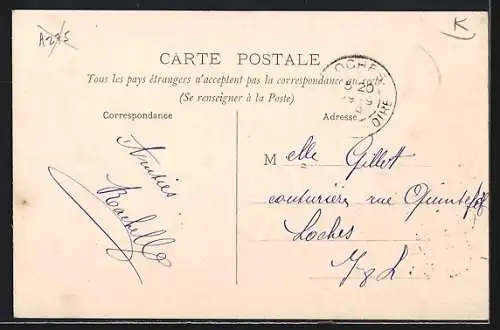 A275
K
CARTE POSTALE
Tous les pays étrangers n'acceptent pas la correspondance au recto
(Se renseigner à la Poste)
Correspondance
Adresse
LOCHES
8 20
OIRE
Amitiés
Rachelle
Melle Gillett
couturière rue Quintefol
Loches
I & L.